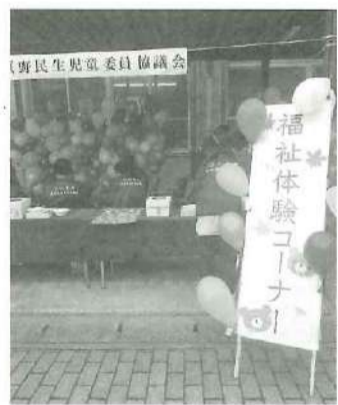 野民生児童委員協議会
福祉体験コーナー